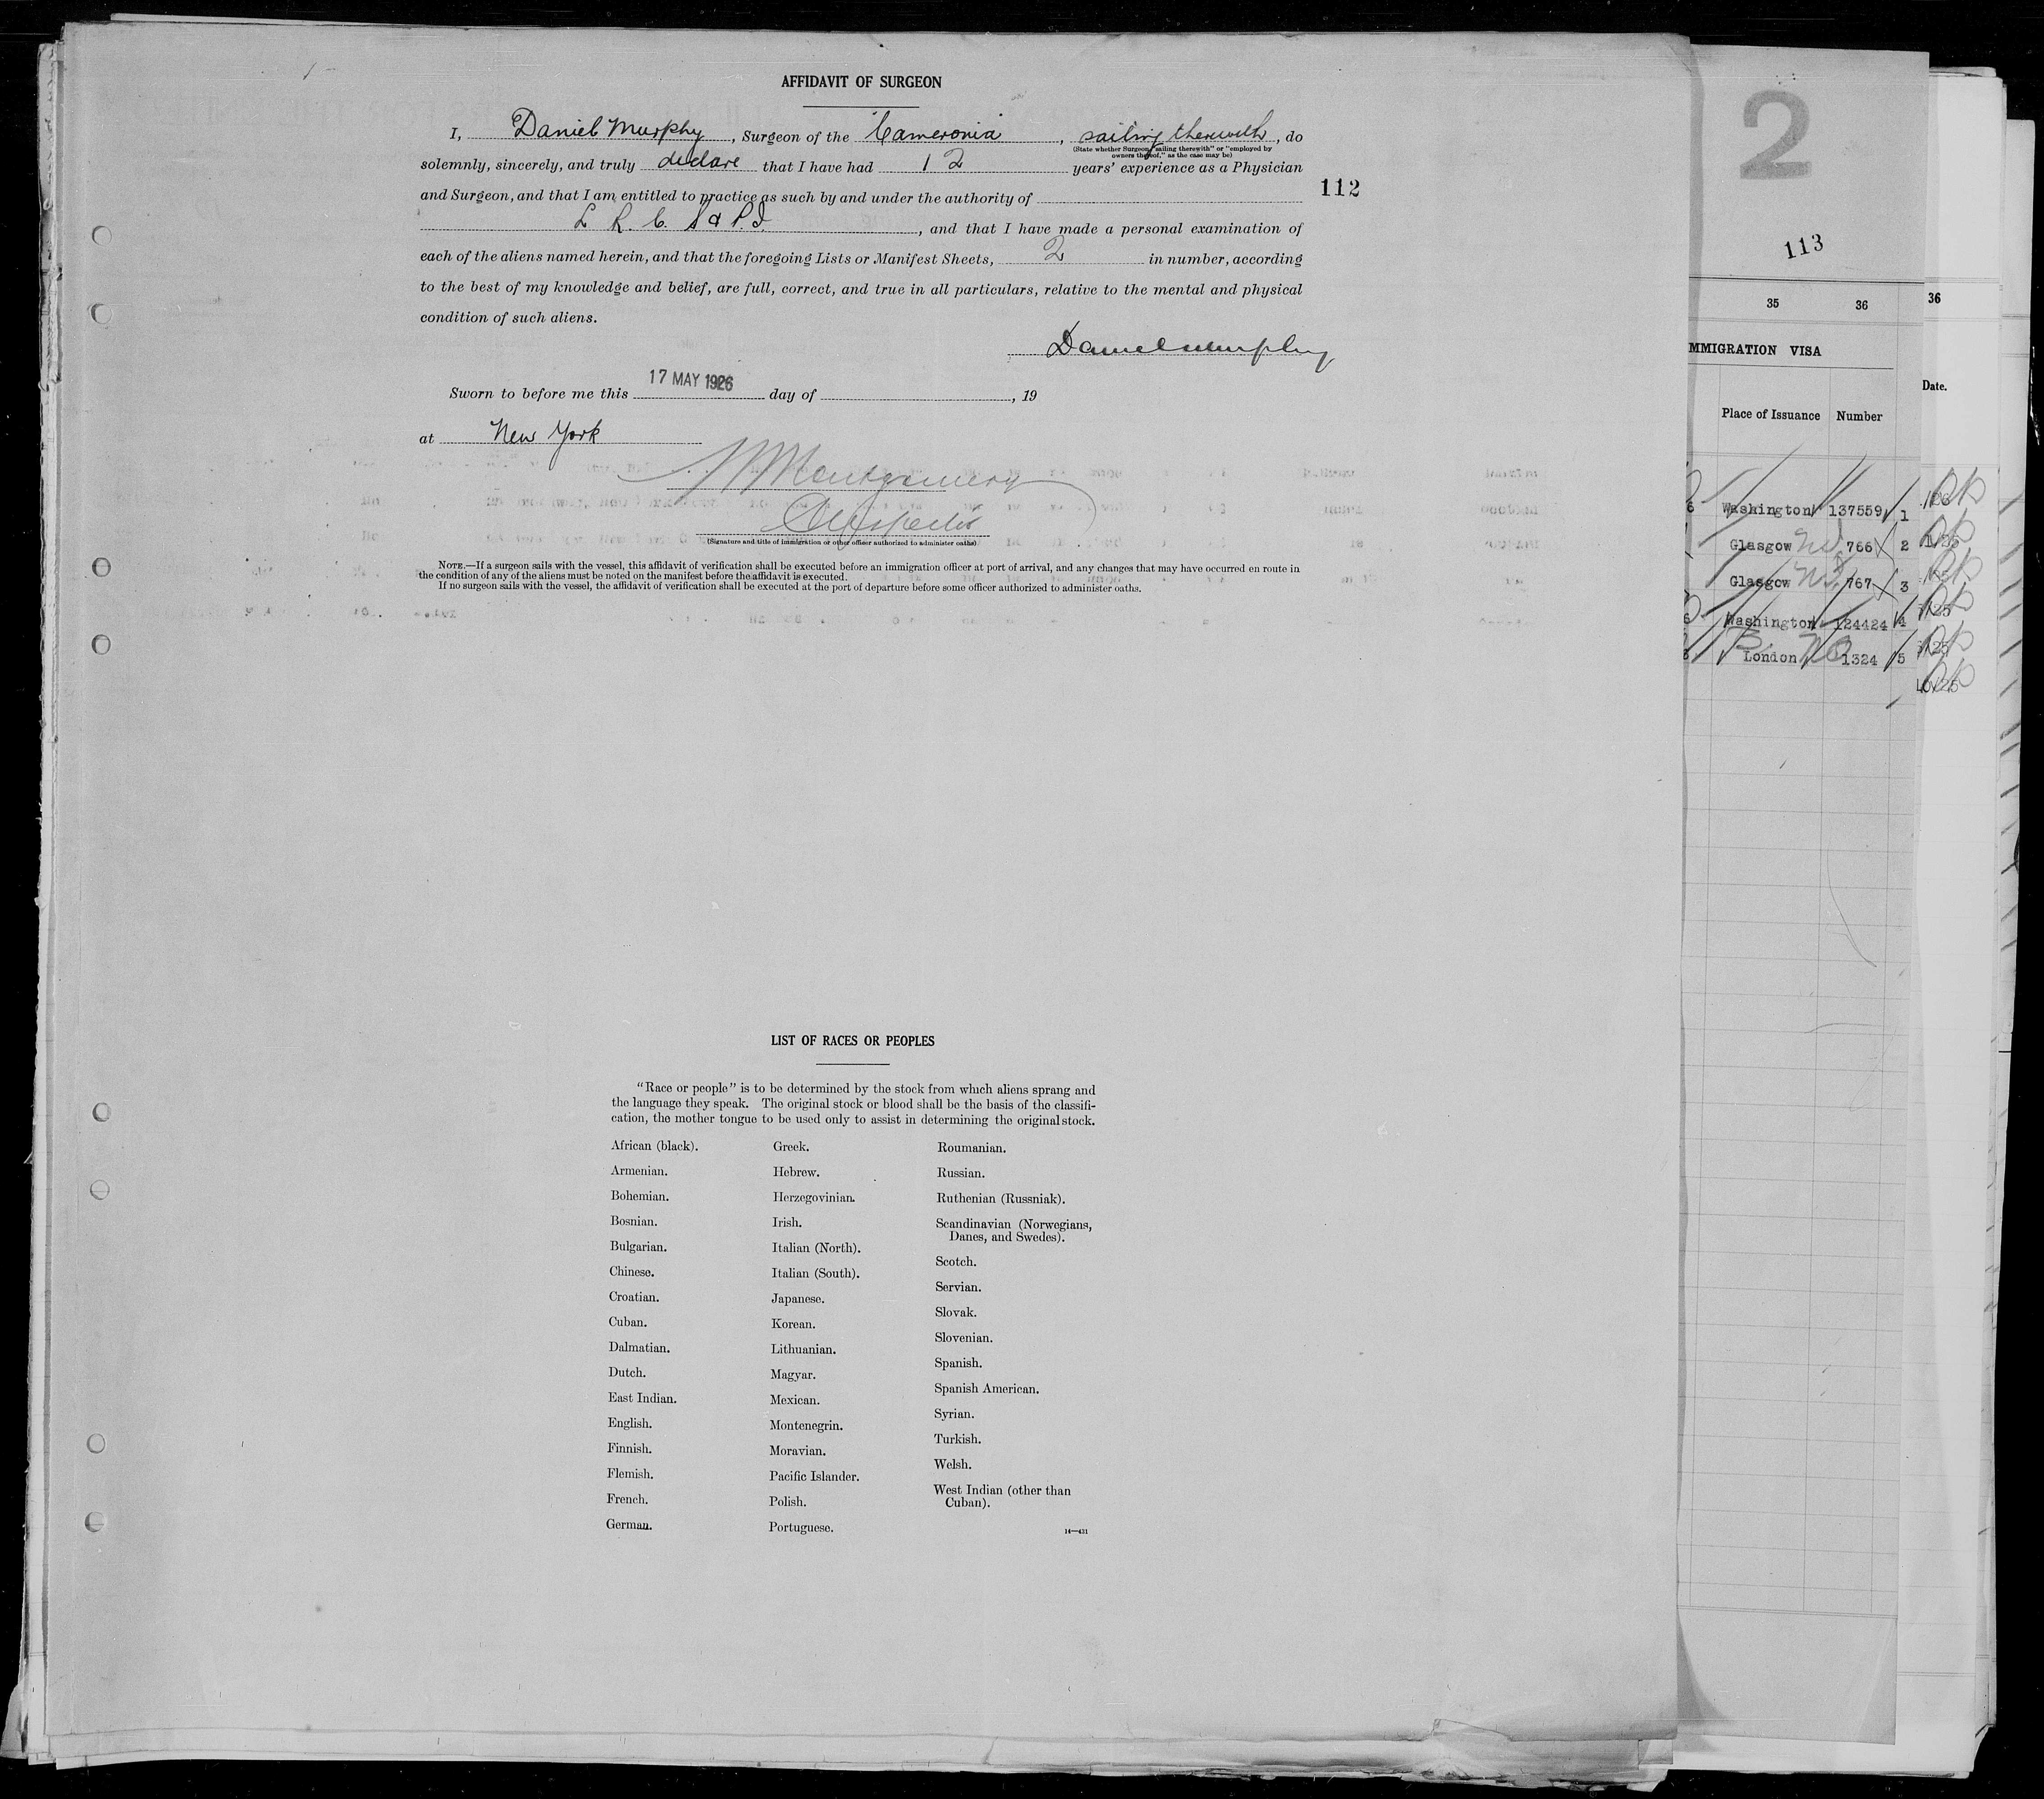 AFFIDAVIT OF SURGEON
I, Daniel Murphy, Surgeon of the Cameronia, sailing therewith, do
(State whether Surgeon "sailing therewith" or "employed by
owners thereof," as the case may be)
solemnly, sincerely, and truly declare that I have had 12 years' experience as a Physician
and Surgeon, and that I am entitled to practice as such by and under the authority of
112
L R. C. S & P. I, and that I have made a personal examination of
each of the aliens named herein, and that the foregoing Lists or Manifest Sheets, 2 in number, according
to the best of my knowledge and belief, are full, correct, and true in all particulars, relative to the mental and physical
condition of such aliens.
Daniel Murphy
Sworn to before me this 17 MAY 1926 day of , 19
at New York
Montgomery
Inspector
(Signature and title of immigration or other officer authorized to administer oaths)
NOTE.—If a surgeon sails with the vessel, this affidavit of verification shall be executed before an immigration officer at port of arrival, and any changes that may have occurred en route in
the condition of any of the aliens must be noted on the manifest before the affidavit is executed.
If no surgeon sails with the vessel, the affidavit of verification shall be executed at the port of departure before some officer authorized to administer oaths.
LIST OF RACES OR PEOPLES
"Race or people" is to be determined by the stock from which aliens sprang and
the language they speak. The original stock or blood shall be the basis of the classifi-
cation, the mother tongue to be used only to assist in determining the original stock.
African (black).
Armenian.
Bohemian.
Bosnian.
Bulgarian.
Chinese.
Croatian.
Cuban.
Dalmatian.
Dutch.
East Indian.
English.
Finnish.
Flemish.
French.
German.
Greek.
Hebrew.
Herzegovinian.
Irish.
Italian (North).
Italian (South).
Japanese.
Korean.
Lithuanian.
Magyar.
Mexican.
Montenegrin.
Moravian.
Pacific Islander.
Polish.
Portuguese.
Roumanian.
Russian.
Ruthenian (Russniak).
Scandinavian (Norwegians,
Danes, and Swedes).
Scotch.
Servian.
Slovak.
Slovenian.
Spanish.
Spanish American.
Syrian.
Turkish.
Welsh.
West Indian (other than
Cuban).
14—431
2
113
35 36
MMIGRATION VISA
Place of Issuance Number
Washington 137559 1
Glasgow 766 2
Glasgow 767 3
Washington 124424 4
London 1324 5
36
Date.